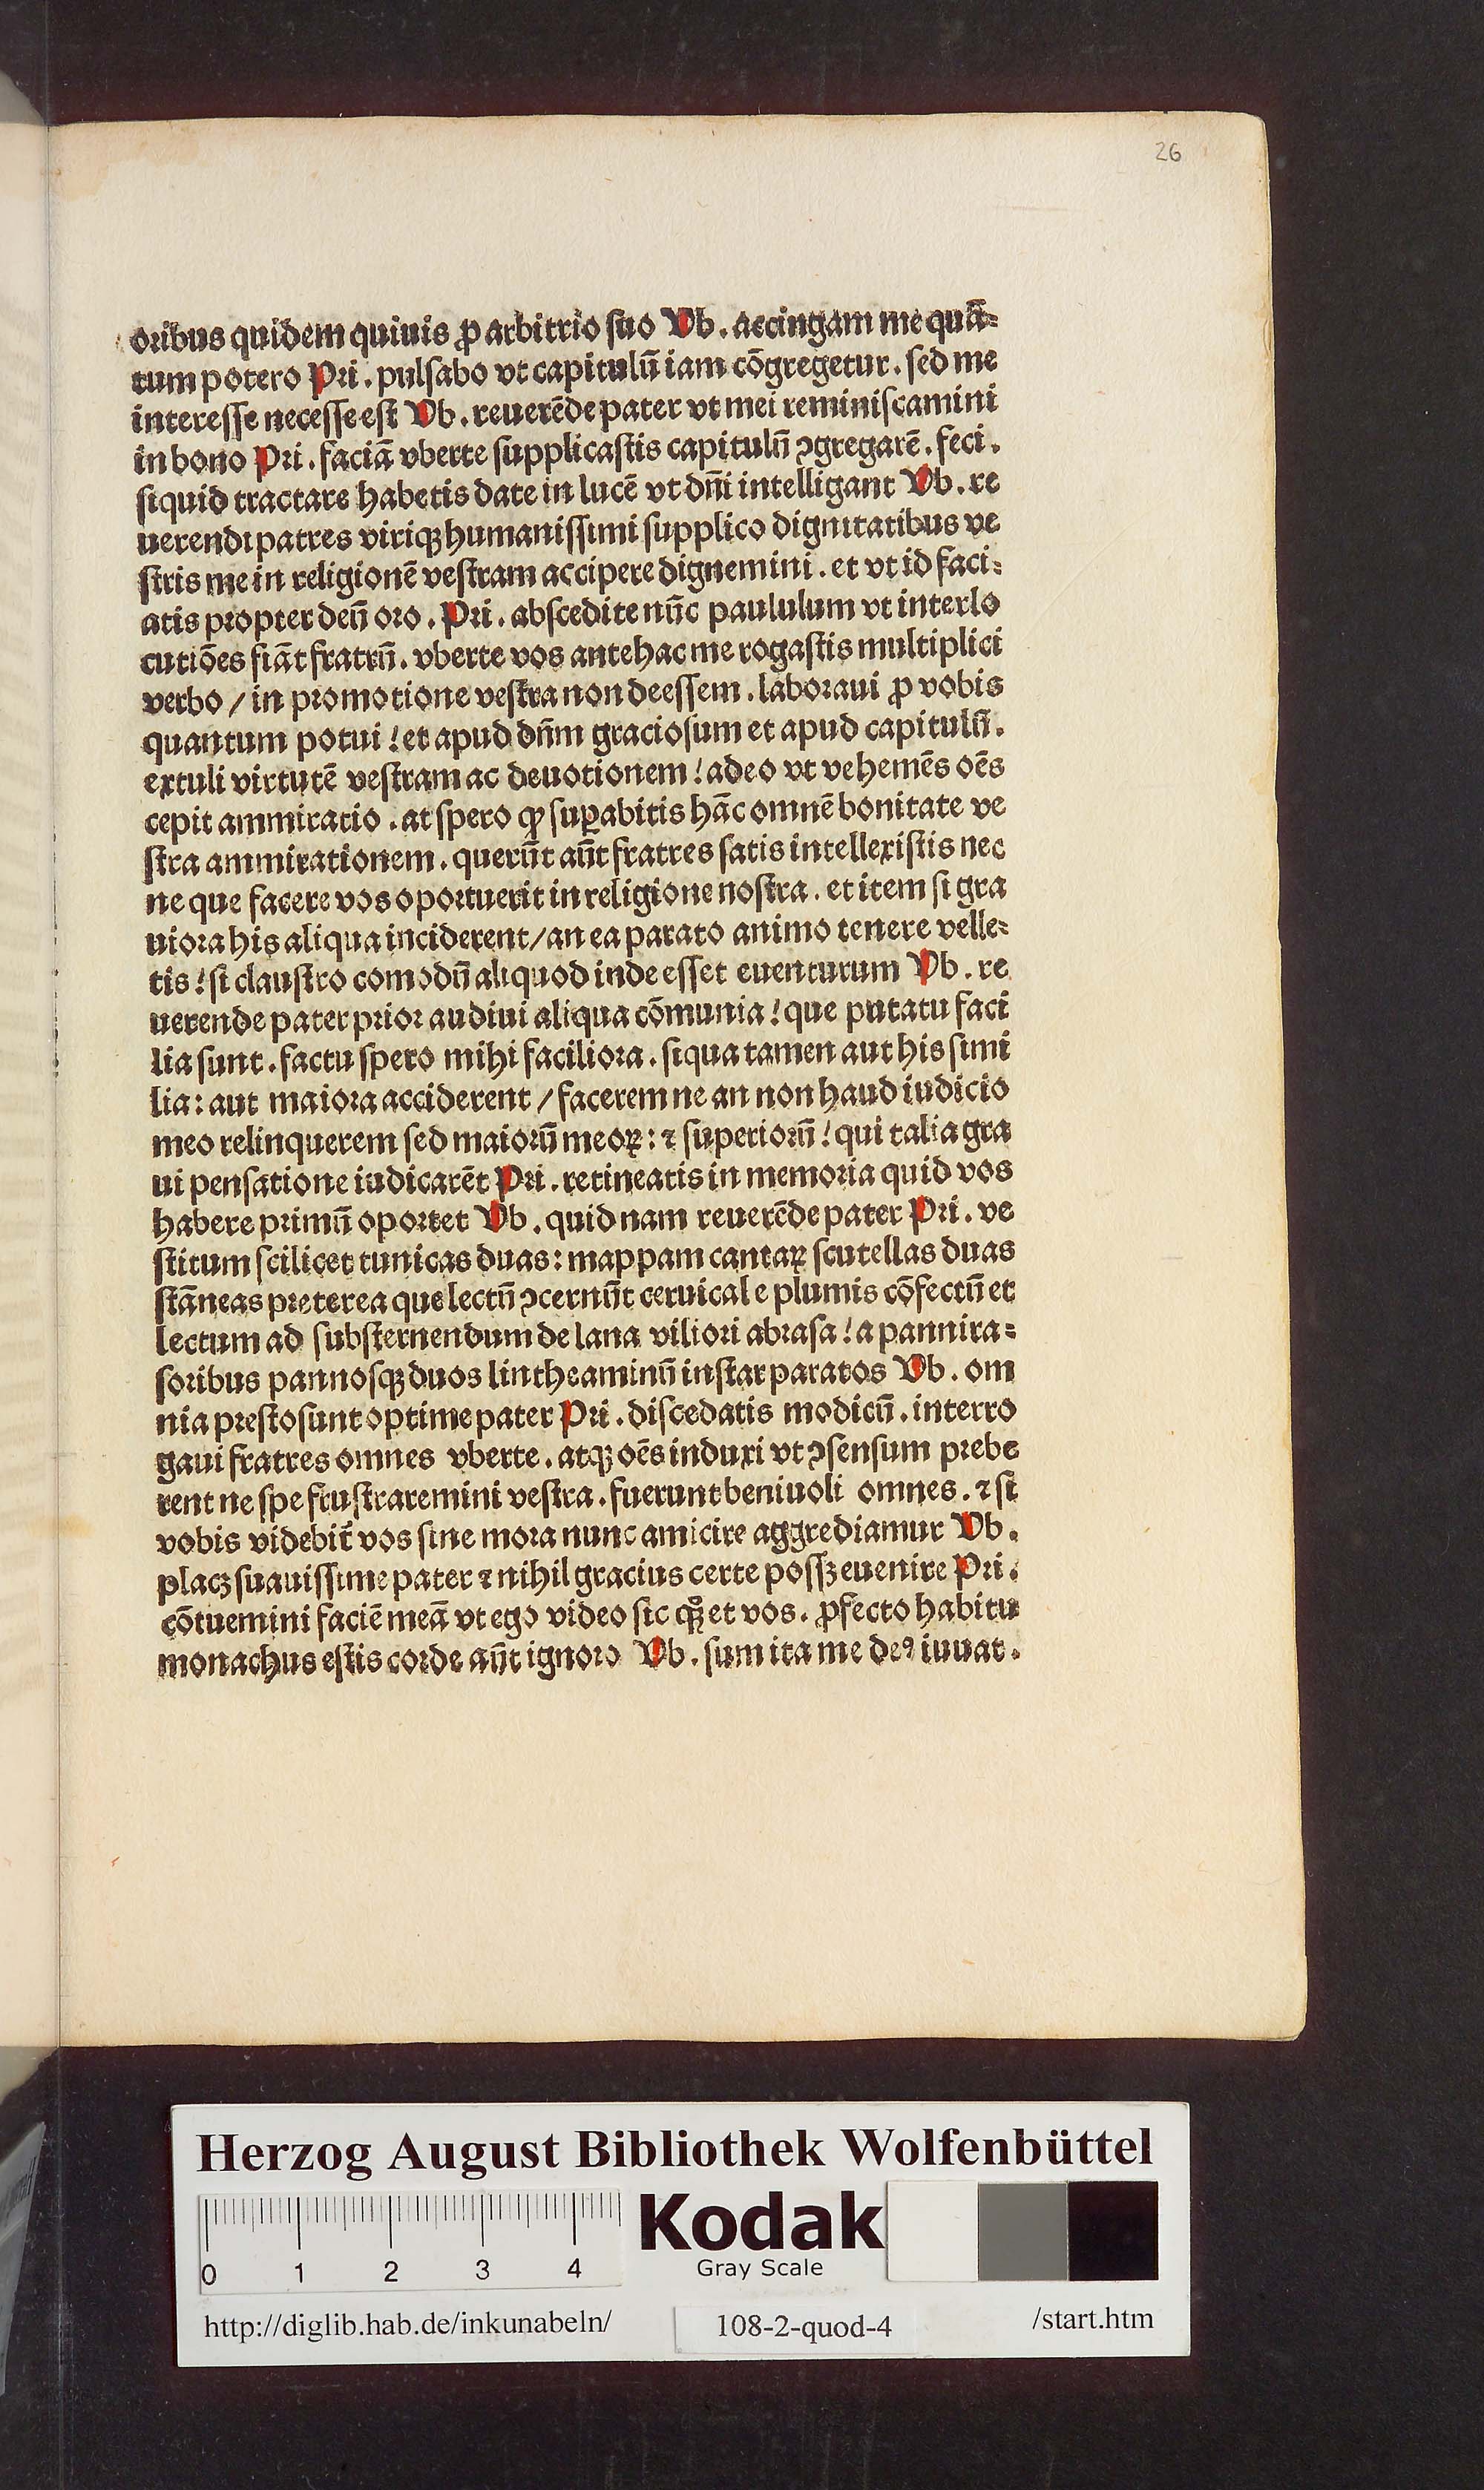 26
oribus quidem quiuis ꝓ arbitrio suo Vb. accingam me quã-
tum potero Pri. pulsabo vt capitulũ iam cõgregetur. sed me
interesse necesse est Vb. reuerẽde pater vt mei reminiscamini
in bono Pri. faciã vberte supplicastis capitulũ ꝯgregarẽ. feci.
siquid tractare habetis date in lucẽ vt dñi intelligant Vb. re
uerendi patres viriqꝫ humanissimi supplico dignitatibus ve
stris me in religionẽ vestram accipere dignemini. et vt id faci-
atis propter deũ oro. Pri. abscedite nũc paululum vt interlo
cutiões fiãt fratrũ. vberte vos antehac me rogastis multiplici
verbo / in promotione vestra non deessem. laboraui ꝓ vobis
quantum potui ! et apud dñm graciosum et apud capitulũ.
extuli virtutẽ vestram ac deuotionem ! adeo vt vehemẽs oẽs
cepit ammiratio. at spero ꝙ suꝑabitis hãc omnẽ bonitate ve
stra ammirationem. querũt aũt fratres satis intellexistis nec
ne que facere vos oportuerit in religione nostra. et item si gra
uiora his aliqua inciderent / an ea parato animo tenere velle-
tis ! si claustro comodũ aliquod inde esset euenturum Vb. re
uerende pater prior audiui aliqua cõmunia ! que putatu faci
lia sunt. factu spero mihi faciliora. siqua tamen aut his simi
lia: aut maiora acciderent / facerem ne an non haud iudicio
meo relinquerem sed maiorũ meoꝝ: ⁊ superiorũ ! qui talia gra
ui pensatione iudicarẽt Pri. retineatis in memoria quid vos
habere primũ oportet Vb. quid nam reuerẽde pater Pri. ve
stitum scilicet tunicas duas: mappam cantaꝝ scutellas duas
stãneas preterea que lectũ ꝯcernũt ceruical e plumis cõfectũ et
lectum ad substernendum de lana viliori abrasa ! a pannira-
soribus pannosqꝫ duos lintheaminũ instar paratos Vb. om
nia presto sunt optime pater Pri. discedatis modicũ. interro
gaui fratres omnes vberte. atqꝫ oẽs induxi vt ꝯsensum prebe
rent ne spe frustraremini vestra. fuerunt beniuoli omnes. ⁊ si
vobis videbit̃ vos sine mora nunc amicire aggrediamur Vb.
placꝫ suauissime pater ⁊ nihil gracius certe possꝫ euenire Pri.
cõtuemini faciẽ meã vt ego video sic qꝫ̃ et vos. ꝓfecto habitu
monachus estis corde aũt ignoro Vb. sum ita me deꝰ iuuat.
Herzog August Bibliothek Wolfenbüttel
0 1 2 3 4
Kodak
Gray Scale
http://diglib.hab.de/inkunabeln/ 108-2-quod-4 /start.htm